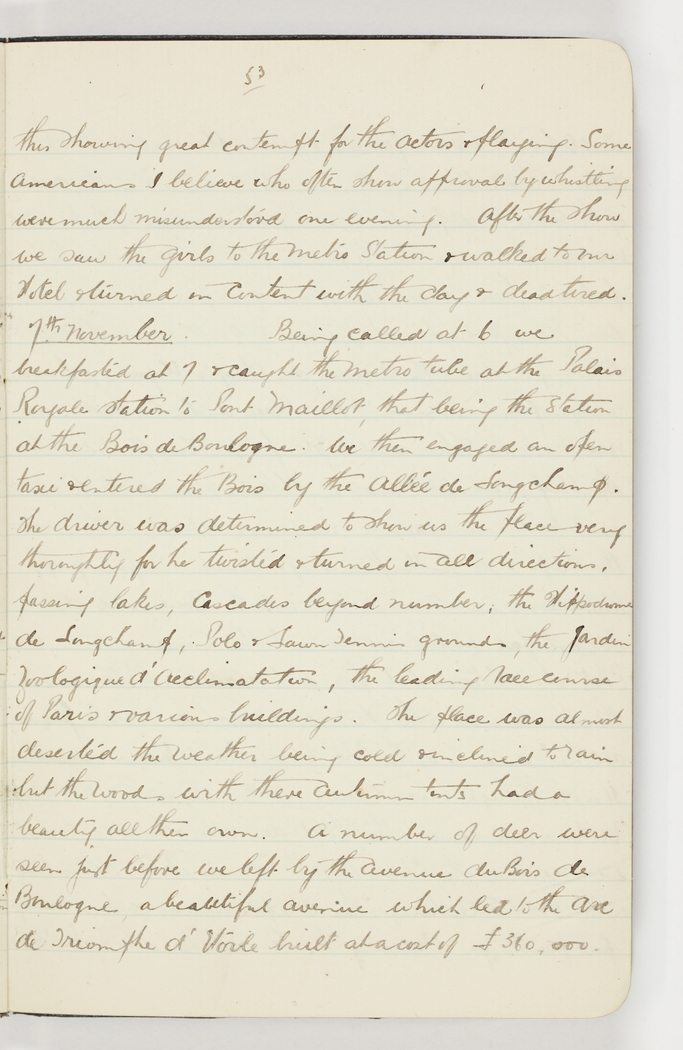 53
this showing great contempt for the actors & playing. Some
Americans I believe who often show approval by whistling
were much misunderstood one evening. After the show
we saw the girls to the Metro Station & walked to our
Hotel & turned in content with the day & dead tired.
7th November. Being called at 6 we
breakfasted at 7 & caught the Metro tube at the Palais
Royale station to Port Maillot, that being the Station
at the Bois de Boulogne. We then engaged an open
taxi & entered the Bois by the Allée de Longchamp.
The driver was determined to show us the place very
thoroughly for he twisted & turned in all directions,
passing lakes, Cascades beyond number, the Hippodrome
de Longchamp, Polo & Lawn Tennis grounds, the Jardin
Zoologique d'Acclimatation, the leading race course
of Paris & various buildings. The place was almost
deserted the weather being cold & inclined to rain
but the woods with there autumn tints had a
beauty all their own. A number of deer were
seen just before we left by the Avenue du Bois de
Boulogne, a beautiful avenue which led to the Arc
de Triomphe d'Etoile built at a cost of £360,000.